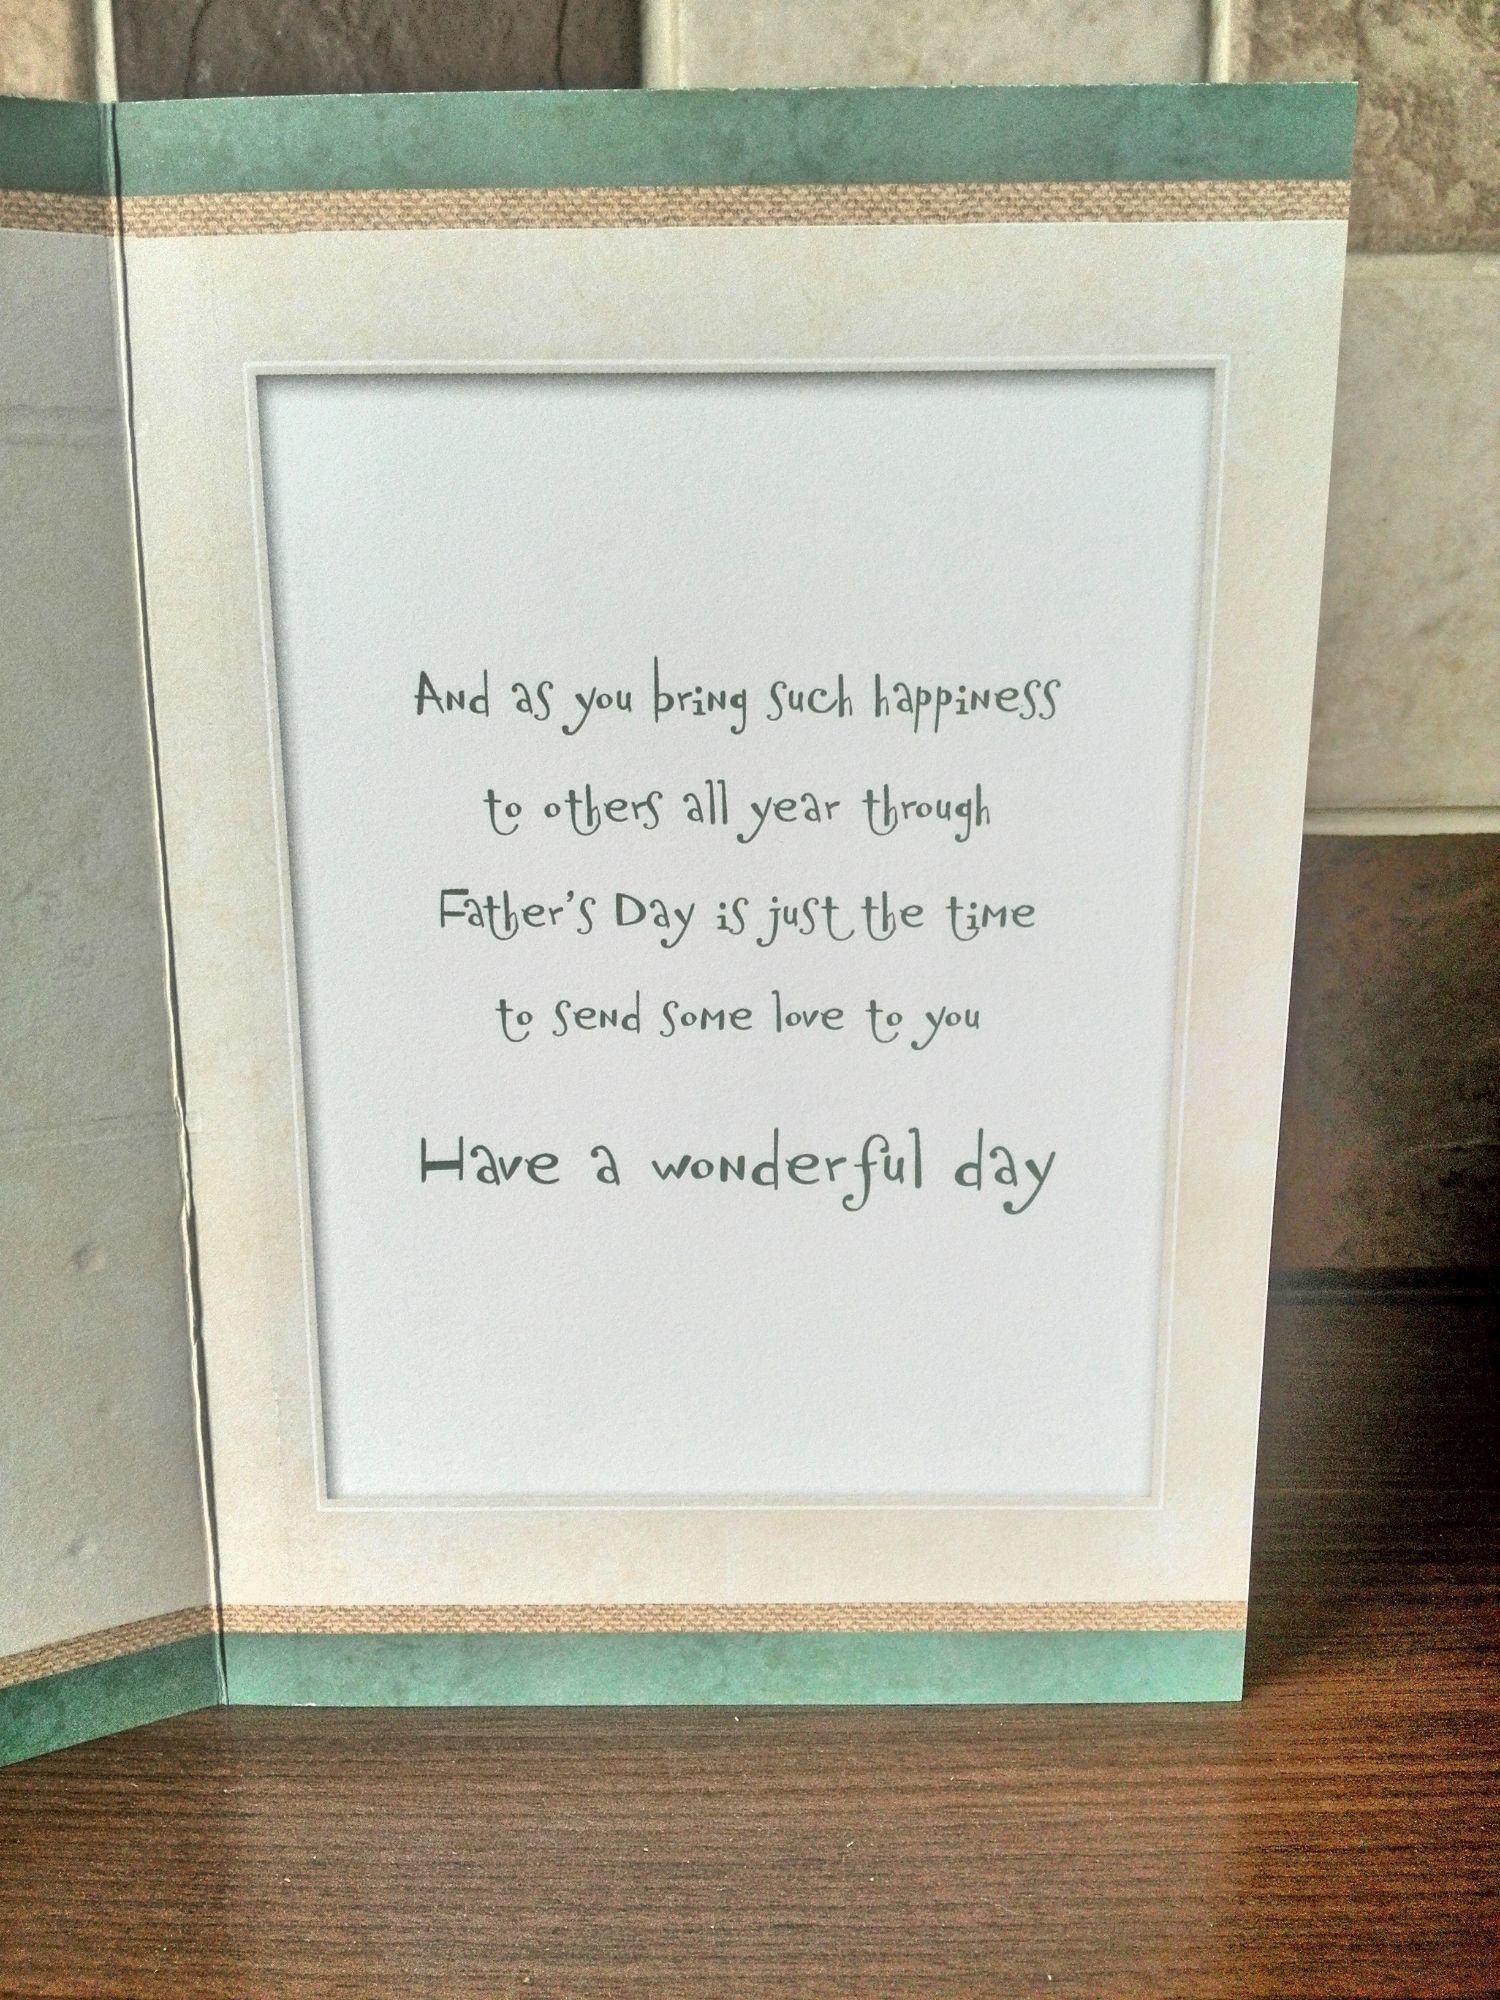 And as you bring such happiness
to others all year through
Father's Day is just the time
to send some love to you
Have a wonderful day